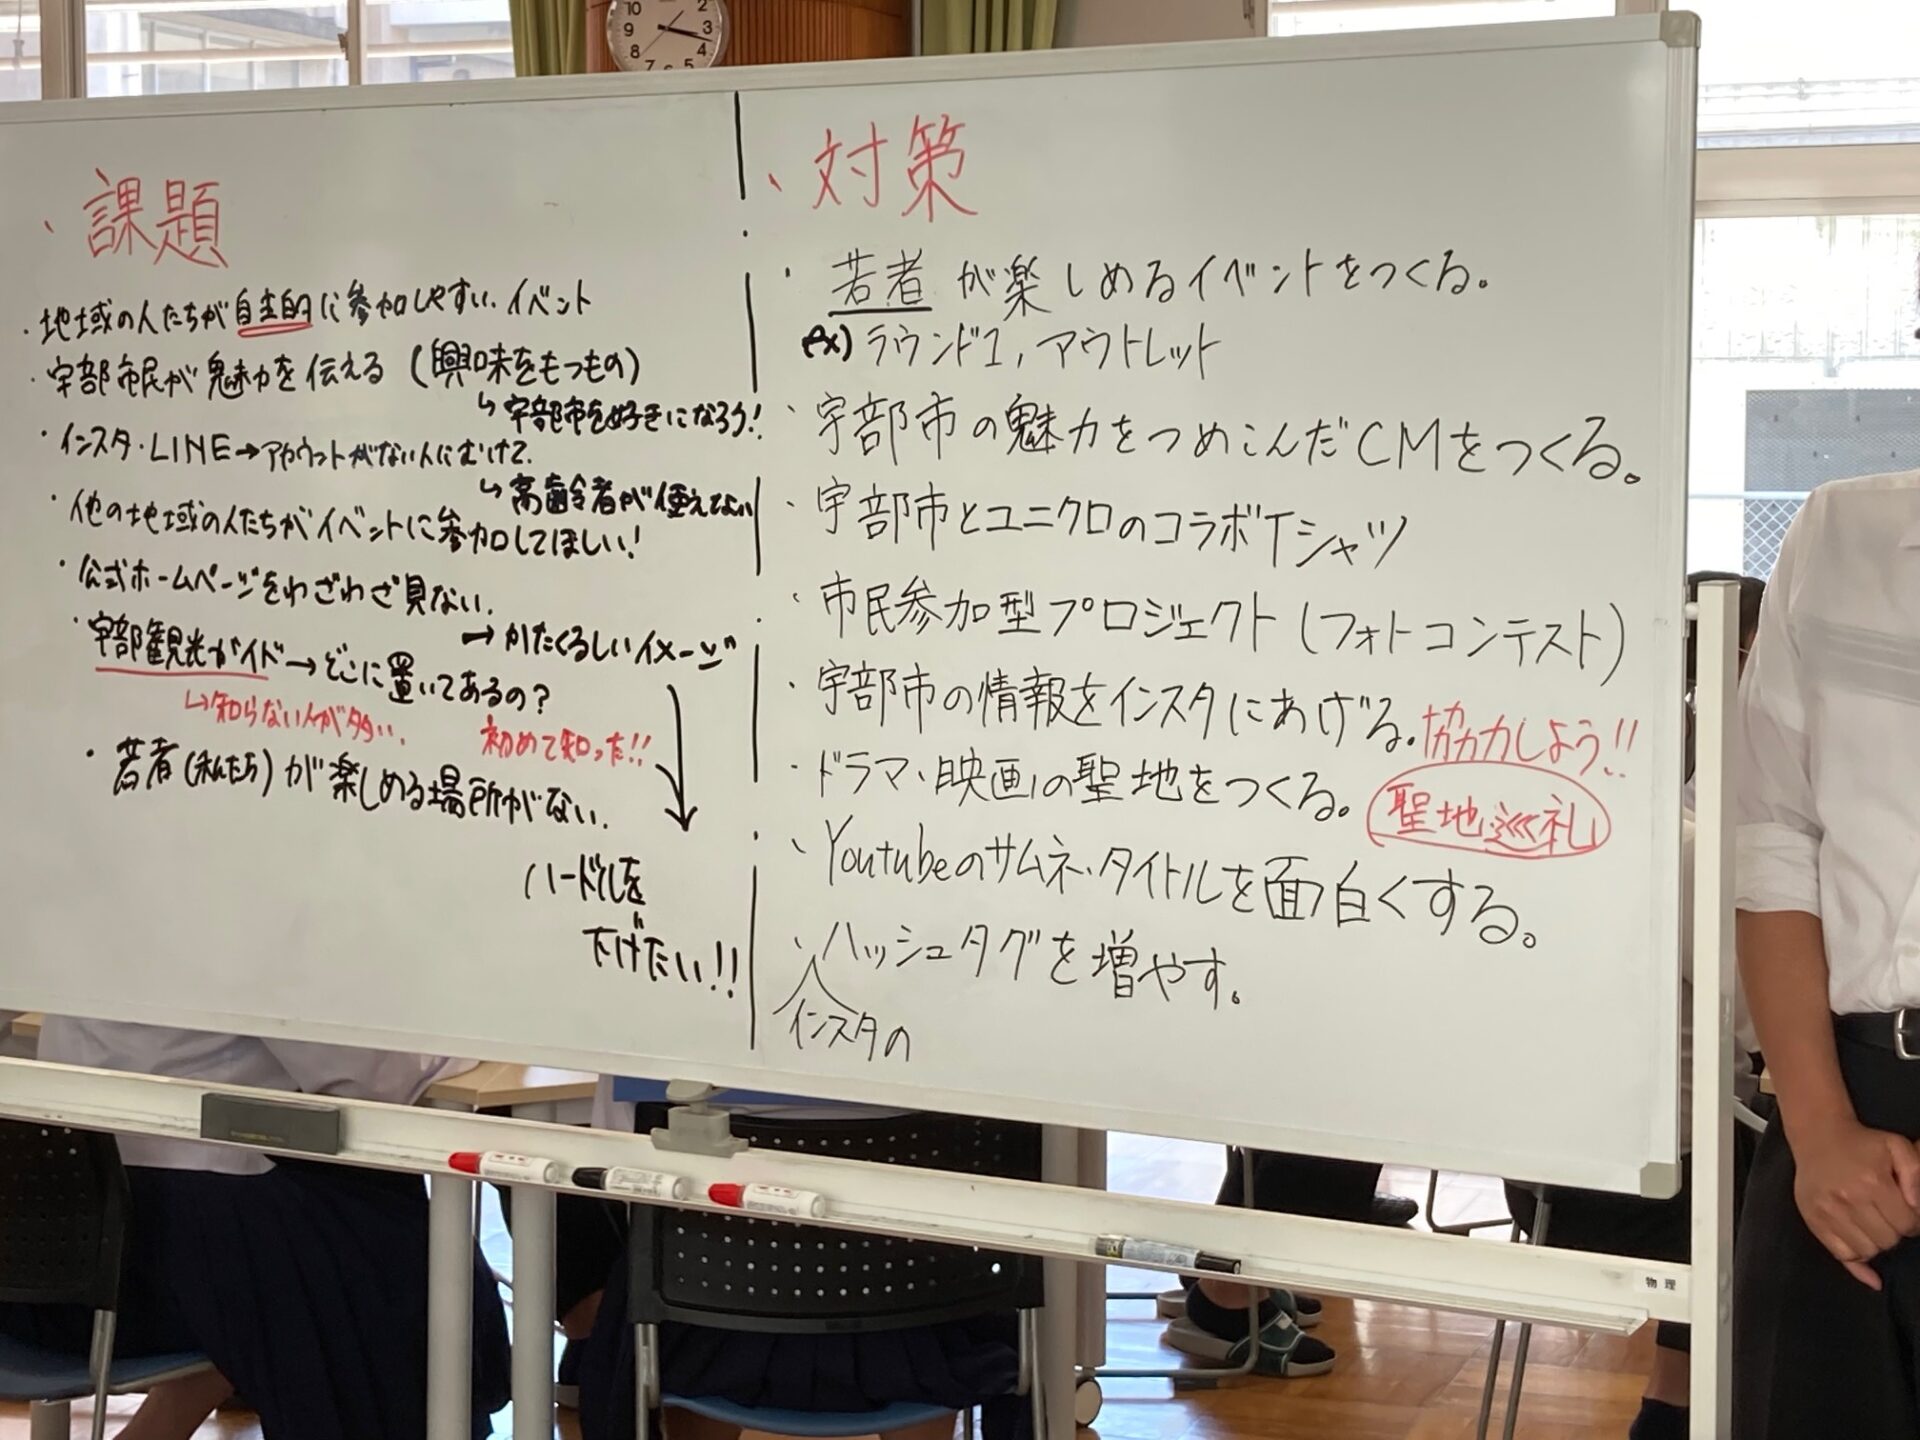 ・課題
・地域の人たちが自主的に参加しやすい、イベント
・宇部市民が魅力を伝える(興味をもつもの)
↳宇部市を好きになろう!
・インスタ・LINE→アカウントがない人にむけて、
↳高齢者が使えない
・他の地域の人たちがイベントに参加してほしい!
・公式ホームページをわざわざ見ない、
→かたくるしいイメージ
・宇部観光ガイド→どこに置いてあるの?
↳知らない人が多い、
初めて知った!!
・若者(私たち)が楽しめる場所がない、
ハードルを
下げたい!!
・対策
・若者が楽しめるイベントをつくる。
ex)ラウンド1, アウトレット
・宇部市の魅力をつめこんだCMをつくる。
・宇部市とユニクロのコラボTシャツ
・市民参加型プロジェクト(フォトコンテスト)
・宇部市の情報をインスタにあげる。協力しよう!!
・ドラマ・映画の聖地をつくる。聖地巡礼
・Youtubeのサムネ・タイトルを面白くする。
・ハッシュタグを増やす。
インスタの
物理
10 2
9 3
8 4
7 5